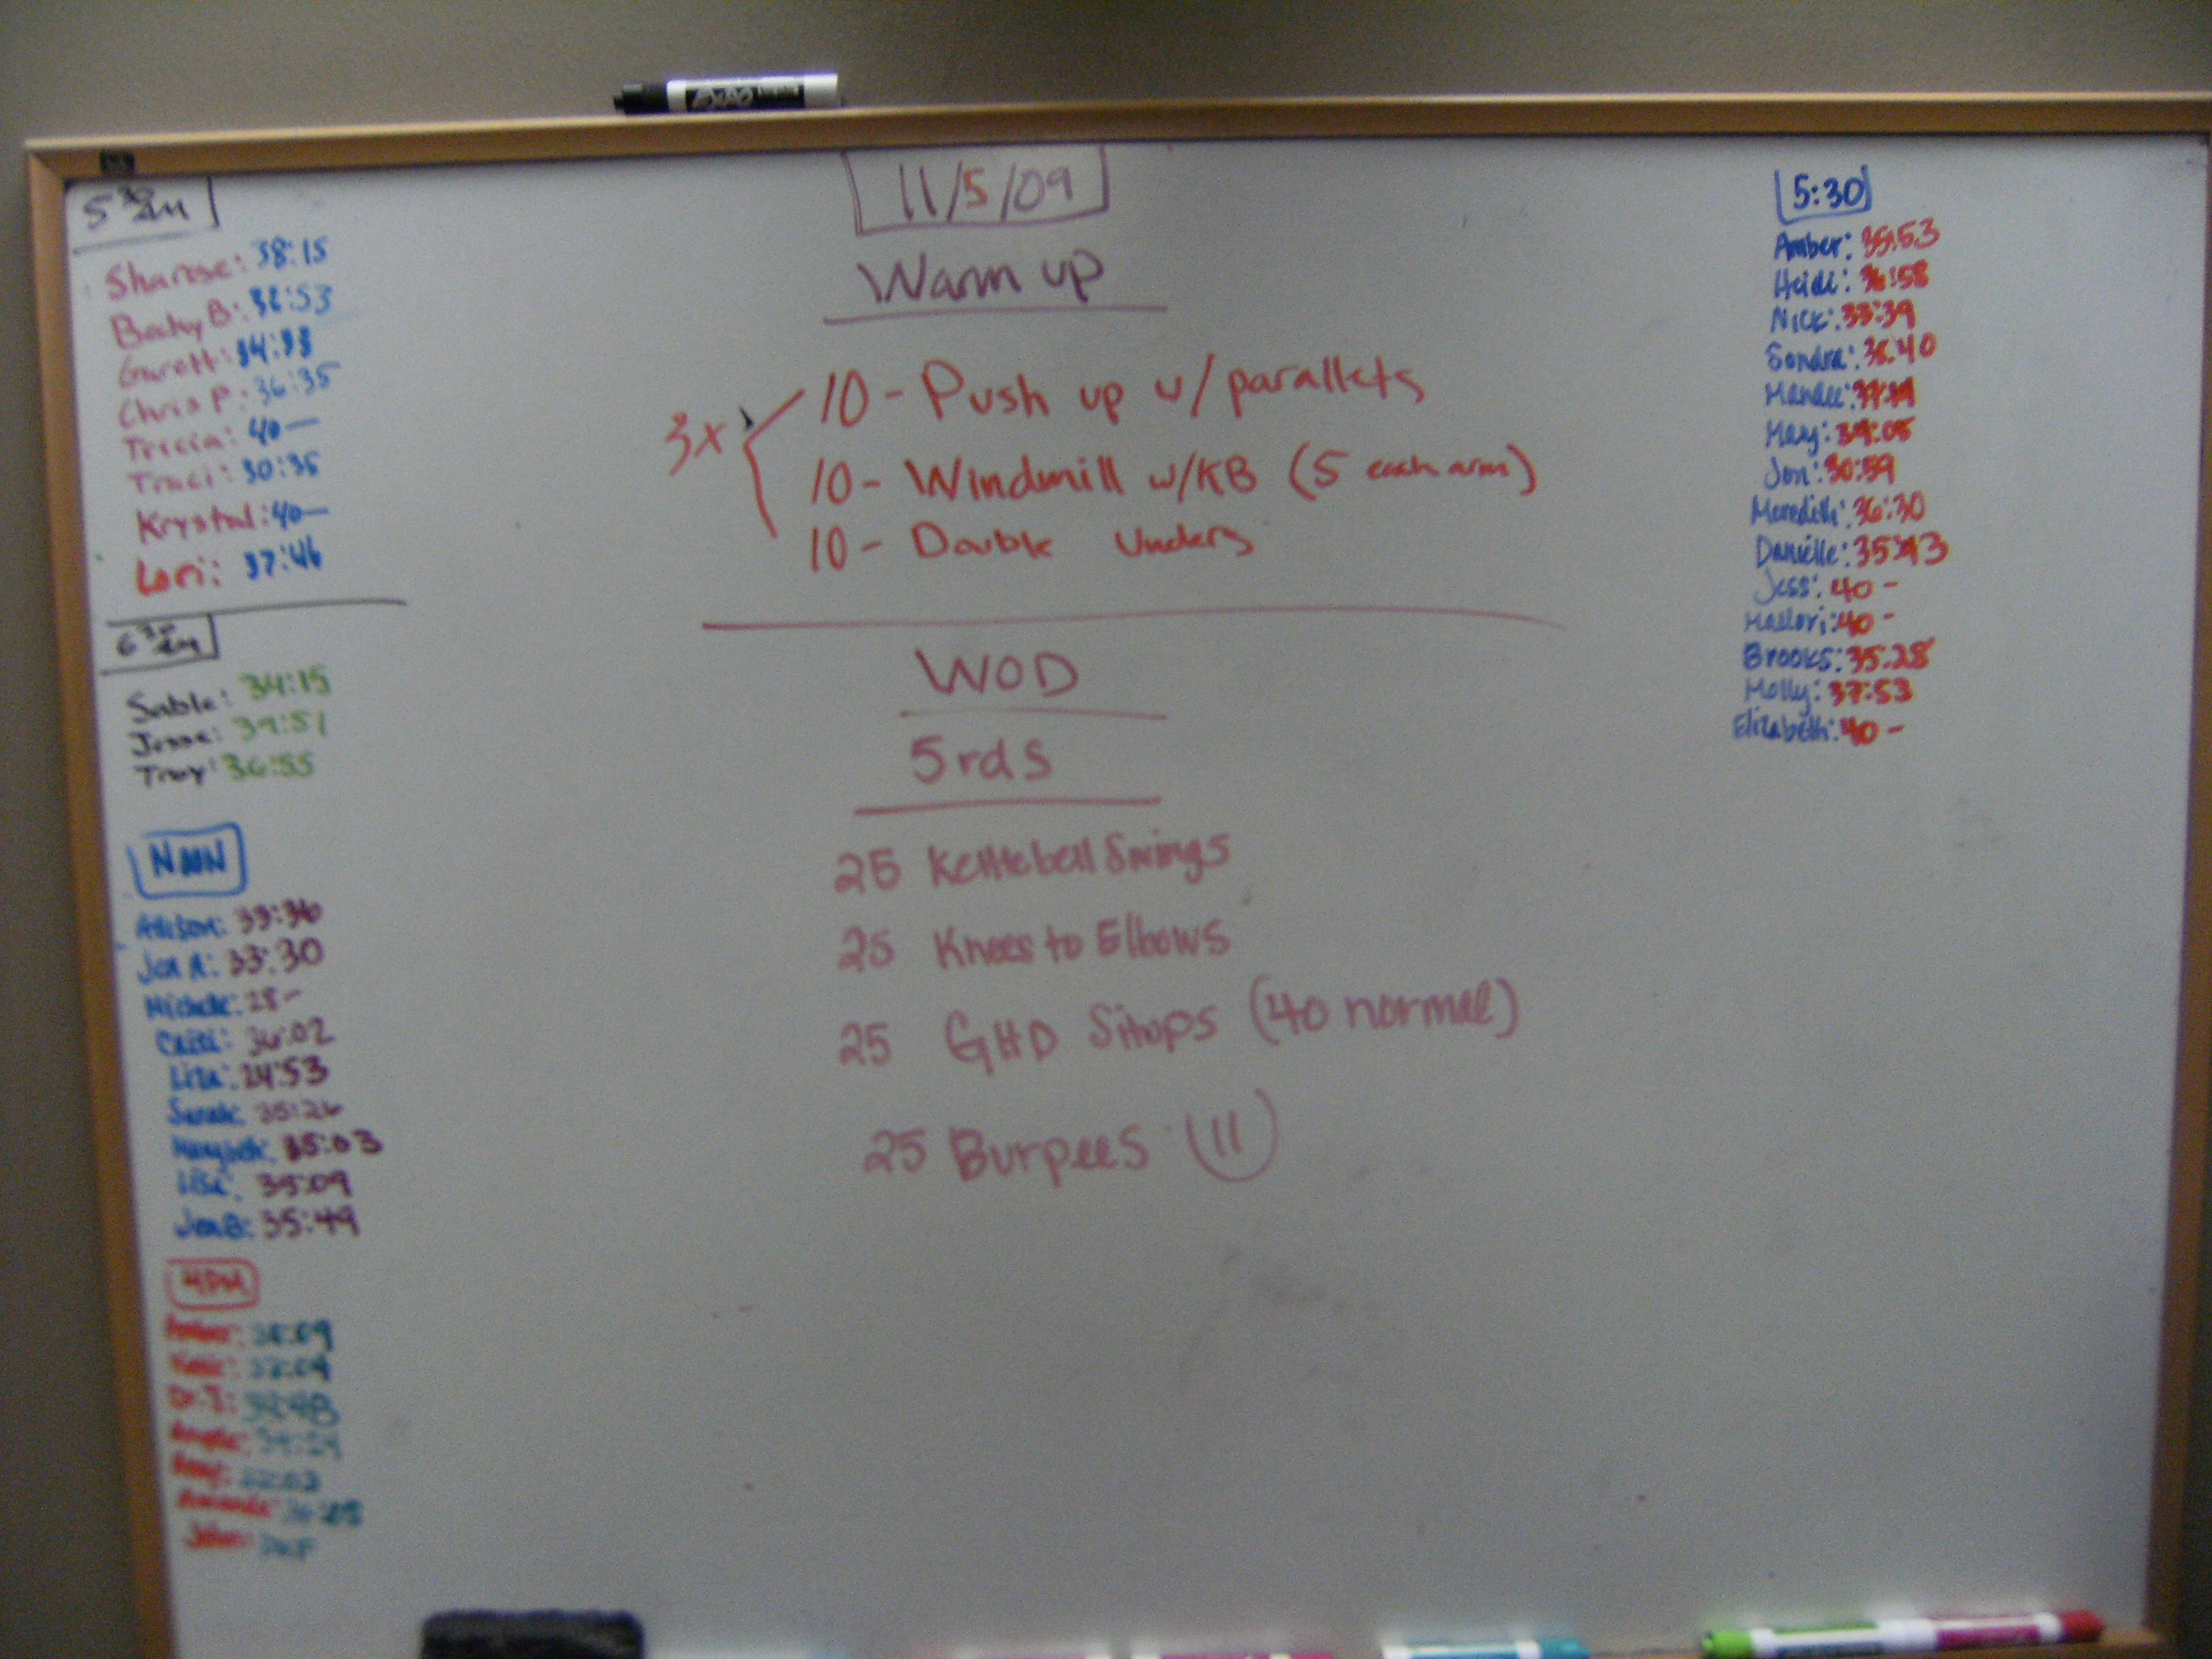 EXPO
11/5/09
Warm up
3x
10 - Push up w/ parallets
10 - Windmill w/KB (5 each arm)
10 - Double Unders
WOD
5 rds
25 Kettlebell Swings
25 Knees to Elbows
25 GHD Situps (40 normal)
25 Burpees (11)
5 30 am
Sharose: 38:15
Becky B: 32:53
Garett: 34:33
Chris P: 36:35
Tricia: 40—
Traci: 30:35
Krystal: 40—
Lori: 37:46
6 30 am
Sable: 34:15
Jesse: 39:51
Troy: 36:55
NOON
Allison: 33:36
Jen A: 33:30
Michelle: 28-
36:02
Liza: 24:53
Sarah: 35:26
35:03
Lisa: 35:09
Jen B: 35:49
4PM
Amber:
Katie:
Dr. J:
Angie:
Amy:
Amanda:
John: DNF
5:30
Amber: 35:53
Heidi: 36:58
Nick: 33:39
Sondra: 38:40
Mandee:
Mary: 39:05
Jon: 30:59
Meredith: 36:30
Danielle: 35:43
Jess: 40 -
Mallori: 40 -
Brooks: 35:28
Molly: 37:53
Elizabeth: 40 -